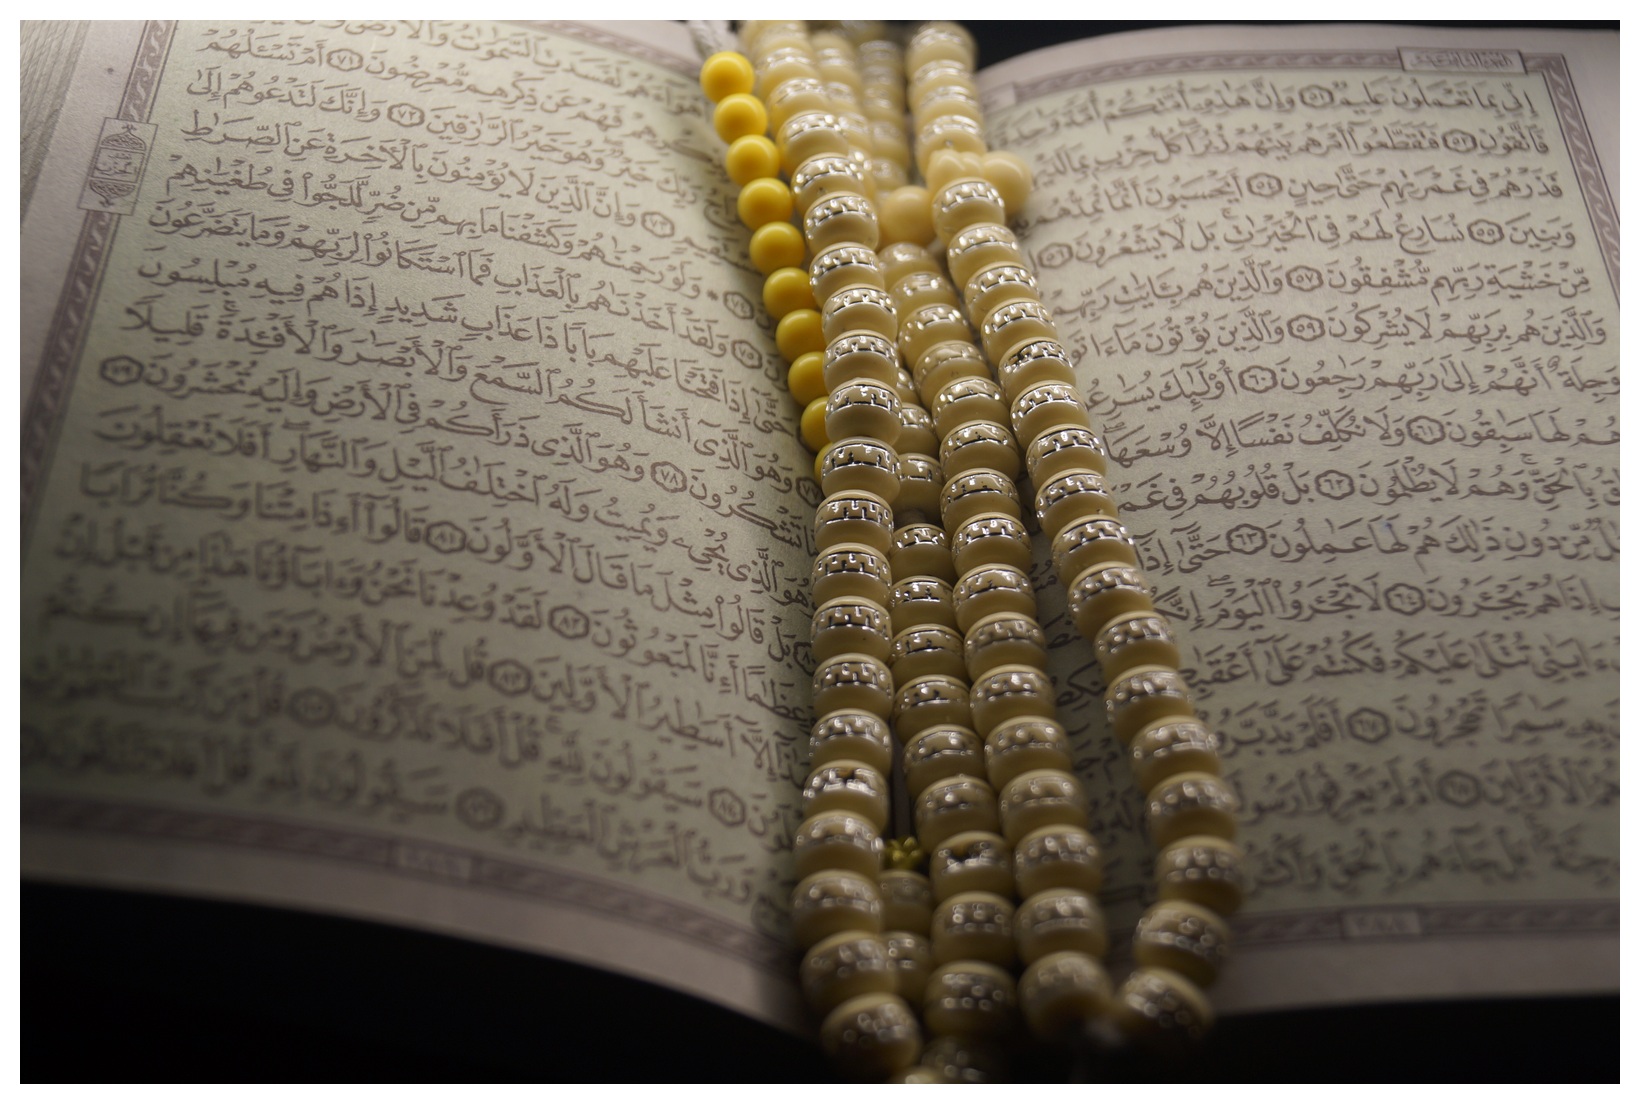 إِنِّى بِمَا تَعْمَلُونَ عَلِيمٌ ۝٥١ وَإِنَّ هَـٰذِهِۦٓ أُمَّتُكُمْ أُمَّةً وَٰحِدَةً
فَٱتَّقُونِ ۝٥٢ فَتَقَطَّعُوٓا۟ أَمْرَهُم بَيْنَهُمْ زُبُرًا ۖ كُلُّ حِزْبٍۭ بِمَا لَدَيْهِمْ
فَذَرْهُمْ فِى غَمْرَتِهِمْ حَتَّىٰ حِينٍ ۝٥٤ أَيَحْسَبُونَ أَنَّمَا نُمِدُّهُم
وَبَنِينَ ۝٥٥ نُسَارِعُ لَهُمْ فِى ٱلْخَيْرَٰتِ ۚ بَل لَّا يَشْعُرُونَ ۝٥٦
مِّنْ خَشْيَةِ رَبِّهِم مُّشْفِقُونَ ۝٥٧ وَٱلَّذِينَ هُم بِـَٔايَـٰتِ رَبِّهِمْ
وَٱلَّذِينَ هُم بِرَبِّهِمْ لَا يُشْرِكُونَ ۝٥٩ وَٱلَّذِينَ يُؤْتُونَ مَآ ءَاتَوا۟
وَجِلَةٌ أَنَّهُمْ إِلَىٰ رَبِّهِمْ رَٰجِعُونَ ۝٦٠ أُو۟لَـٰٓئِكَ يُسَـٰرِعُونَ
وَهُمْ لَهَا سَـٰبِقُونَ ۝٦١ وَلَا نُكَلِّفُ نَفْسًا إِلَّا وُسْعَهَا ۖ
يَنطِقُ بِٱلْحَقِّ ۚ وَهُمْ لَا يُظْلَمُونَ ۝٦٢ بَلْ قُلُوبُهُمْ فِى غَمْرَةٍ
مِّن دُونِ ذَٰلِكَ هُمْ لَهَا عَـٰمِلُونَ ۝٦٣ حَتَّىٰٓ إِذَآ
إِذَا هُمْ يَجْـَٔرُونَ ۝٦٤ لَا تَجْـَٔرُوا۟ ٱلْيَوْمَ ۖ إِنَّكُم
ءَايَـٰتِى تُتْلَىٰ عَلَيْكُمْ فَكُنتُمْ عَلَىٰٓ أَعْقَـٰبِكُمْ تَنكِصُونَ
بِهِۦ سَـٰمِرًا تَهْجُرُونَ ۝٦٧ أَفَلَمْ يَدَّبَّرُوا۟
ٱلْأَوَّلِينَ ۝٦٨ أَمْ لَمْ يَعْرِفُوا۟ رَسُولَهُمْ
جِنَّةٌۢ ۚ بَلْ جَآءَهُم بِٱلْحَقِّ وَأَكْثَرُهُمْ
أَهْوَآءَهُمْ لَفَسَدَتِ ٱلسَّمَـٰوَٰتُ وَٱلْأَرْضُ
بِذِكْرِهِمْ فَهُمْ عَن ذِكْرِهِم مُّعْرِضُونَ ۝٧١ أَمْ تَسْـَٔلُهُمْ
خَرْجًا فَخَرَاجُ رَبِّكَ خَيْرٌ ۖ وَهُوَ خَيْرُ ٱلرَّٰزِقِينَ ۝٧٢ وَإِنَّكَ لَتَدْعُوهُمْ إِلَىٰ
مُّسْتَقِيمٍ ۝٧٣ وَإِنَّ ٱلَّذِينَ لَا يُؤْمِنُونَ بِٱلْـَٔاخِرَةِ عَنِ ٱلصِّرَٰطِ
۝٧٤ ۞ وَلَوْ رَحِمْنَـٰهُمْ وَكَشَفْنَا مَا بِهِم مِّن ضُرٍّ لَّلَجُّوا۟ فِى طُغْيَـٰنِهِمْ
۝٧٥ وَلَقَدْ أَخَذْنَـٰهُم بِٱلْعَذَابِ فَمَا ٱسْتَكَانُوا۟ لِرَبِّهِمْ وَمَا يَتَضَرَّعُونَ
حَتَّىٰٓ إِذَا فَتَحْنَا عَلَيْهِم بَابًا ذَا عَذَابٍ شَدِيدٍ إِذَا هُمْ فِيهِ مُبْلِسُونَ
۝٧٧ وَهُوَ ٱلَّذِىٓ أَنشَأَ لَكُمُ ٱلسَّمْعَ وَٱلْأَبْصَـٰرَ وَٱلْأَفْـِٔدَةَ ۚ قَلِيلًا
مَّا تَشْكُرُونَ ۝٧٨ وَهُوَ ٱلَّذِى ذَرَأَكُمْ فِى ٱلْأَرْضِ وَإِلَيْهِ تُحْشَرُونَ ۝٧٩
وَهُوَ ٱلَّذِى يُحْىِۦ وَيُمِيتُ وَلَهُ ٱخْتِلَـٰفُ ٱلَّيْلِ وَٱلنَّهَارِ ۚ أَفَلَا تَعْقِلُونَ
۝٨٠ بَلْ قَالُوا۟ مِثْلَ مَا قَالَ ٱلْأَوَّلُونَ ۝٨١ قَالُوٓا۟ أَءِذَا مِتْنَا وَكُنَّا تُرَابًا
وَعِظَـٰمًا أَءِنَّا لَمَبْعُوثُونَ ۝٨٢ لَقَدْ وُعِدْنَا نَحْنُ وَءَابَآؤُنَا هَـٰذَا مِن قَبْلُ إِنْ
هَـٰذَآ إِلَّآ أَسَـٰطِيرُ ٱلْأَوَّلِينَ ۝٨٣ قُل لِّمَنِ ٱلْأَرْضُ وَمَن فِيهَآ إِن كُنتُمْ
۝٨٤ سَيَقُولُونَ لِلَّهِ ۚ قُلْ أَفَلَا تَذَكَّرُونَ ۝٨٥ قُلْ مَن رَّبُّ ٱلسَّمَـٰوَٰتِ
وَرَبُّ ٱلْعَرْشِ ٱلْعَظِيمِ ۝٨٦ سَيَقُولُونَ لِلَّهِ ۚ قُلْ أَفَلَا تَتَّقُونَ